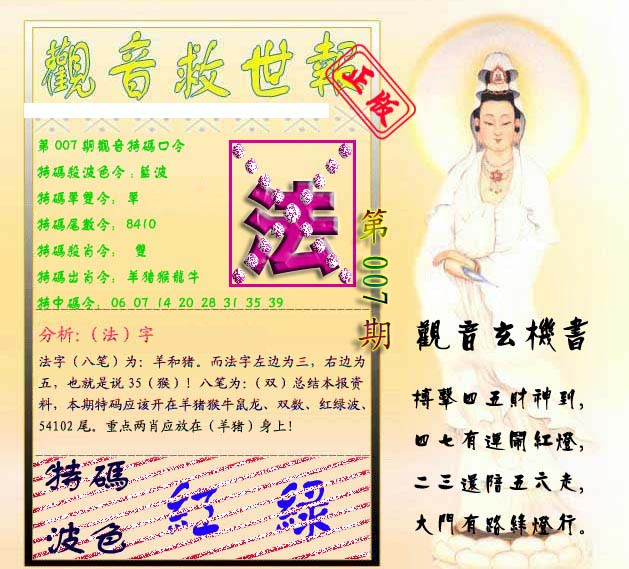 觀音救世報
正版
第007期觀音特碼口令
特碼殺波色令：藍波
特碼單雙令： 單
特碼尾數令： 8410
特碼殺肖令： 雙
特碼出肖令： 羊猪猴龍牛
特中碼令： 06 07 14 20 28 31 35 39
法
第007期
分析:（法）字
法字（八笔）为：羊和猪。而法字左边为三，右边为
五，也就是说 35（猴）！八笔为：（双）总结本报资
料，本期特码应该开在羊猪猴牛鼠龙、双数、红绿波、
54102 尾。重点两肖应放在（羊猪）身上！
特碼
波色
紅 綠
觀音玄機書
搏擊四五財神到，
四七有運鬧紅燈，
二三還陪五六走，
大門有路綠燈行。